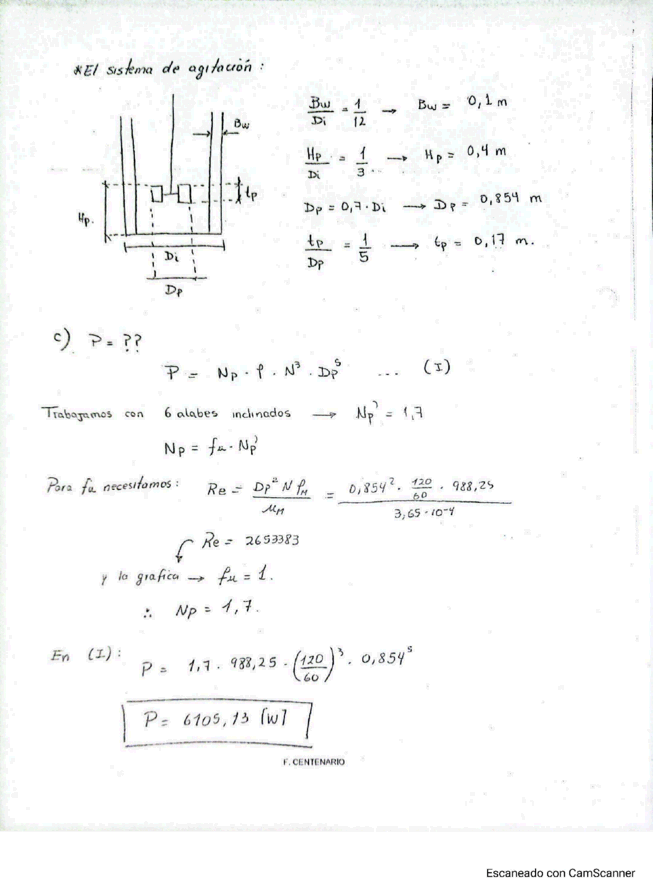 *El sistema de agitación :
Bw/Di = 1/12 → Bw = 0,1 m
Bw
Hp/Di = 1/3 → Hp = 0,4 m
tp
Hp.
Dp = 0,7 · Di → Dp = 0,854 m
tp/Dp = 1/5 → tp = 0,17 m.
Di
Dp
c) P = ??
P = Np · ρ · N³ · Dp⁵ ... (I)
Trabajamos con 6 alabes inclinados → Np' = 1,7
Np = fμ · Np'
Para fμ necesitamos : Re = Dp² N ρM / μM = 0,854² · 120/60 · 988,25 / 3,65 · 10⁻⁴
Re = 2653383
y la grafica → fμ = 1.
∴ Np = 1,7.
En (I) : P = 1,7 · 988,25 · (120/60)³ · 0,854⁵
P = 6105,13 [W]
F. CENTENARIO
Escaneado con CamScanner